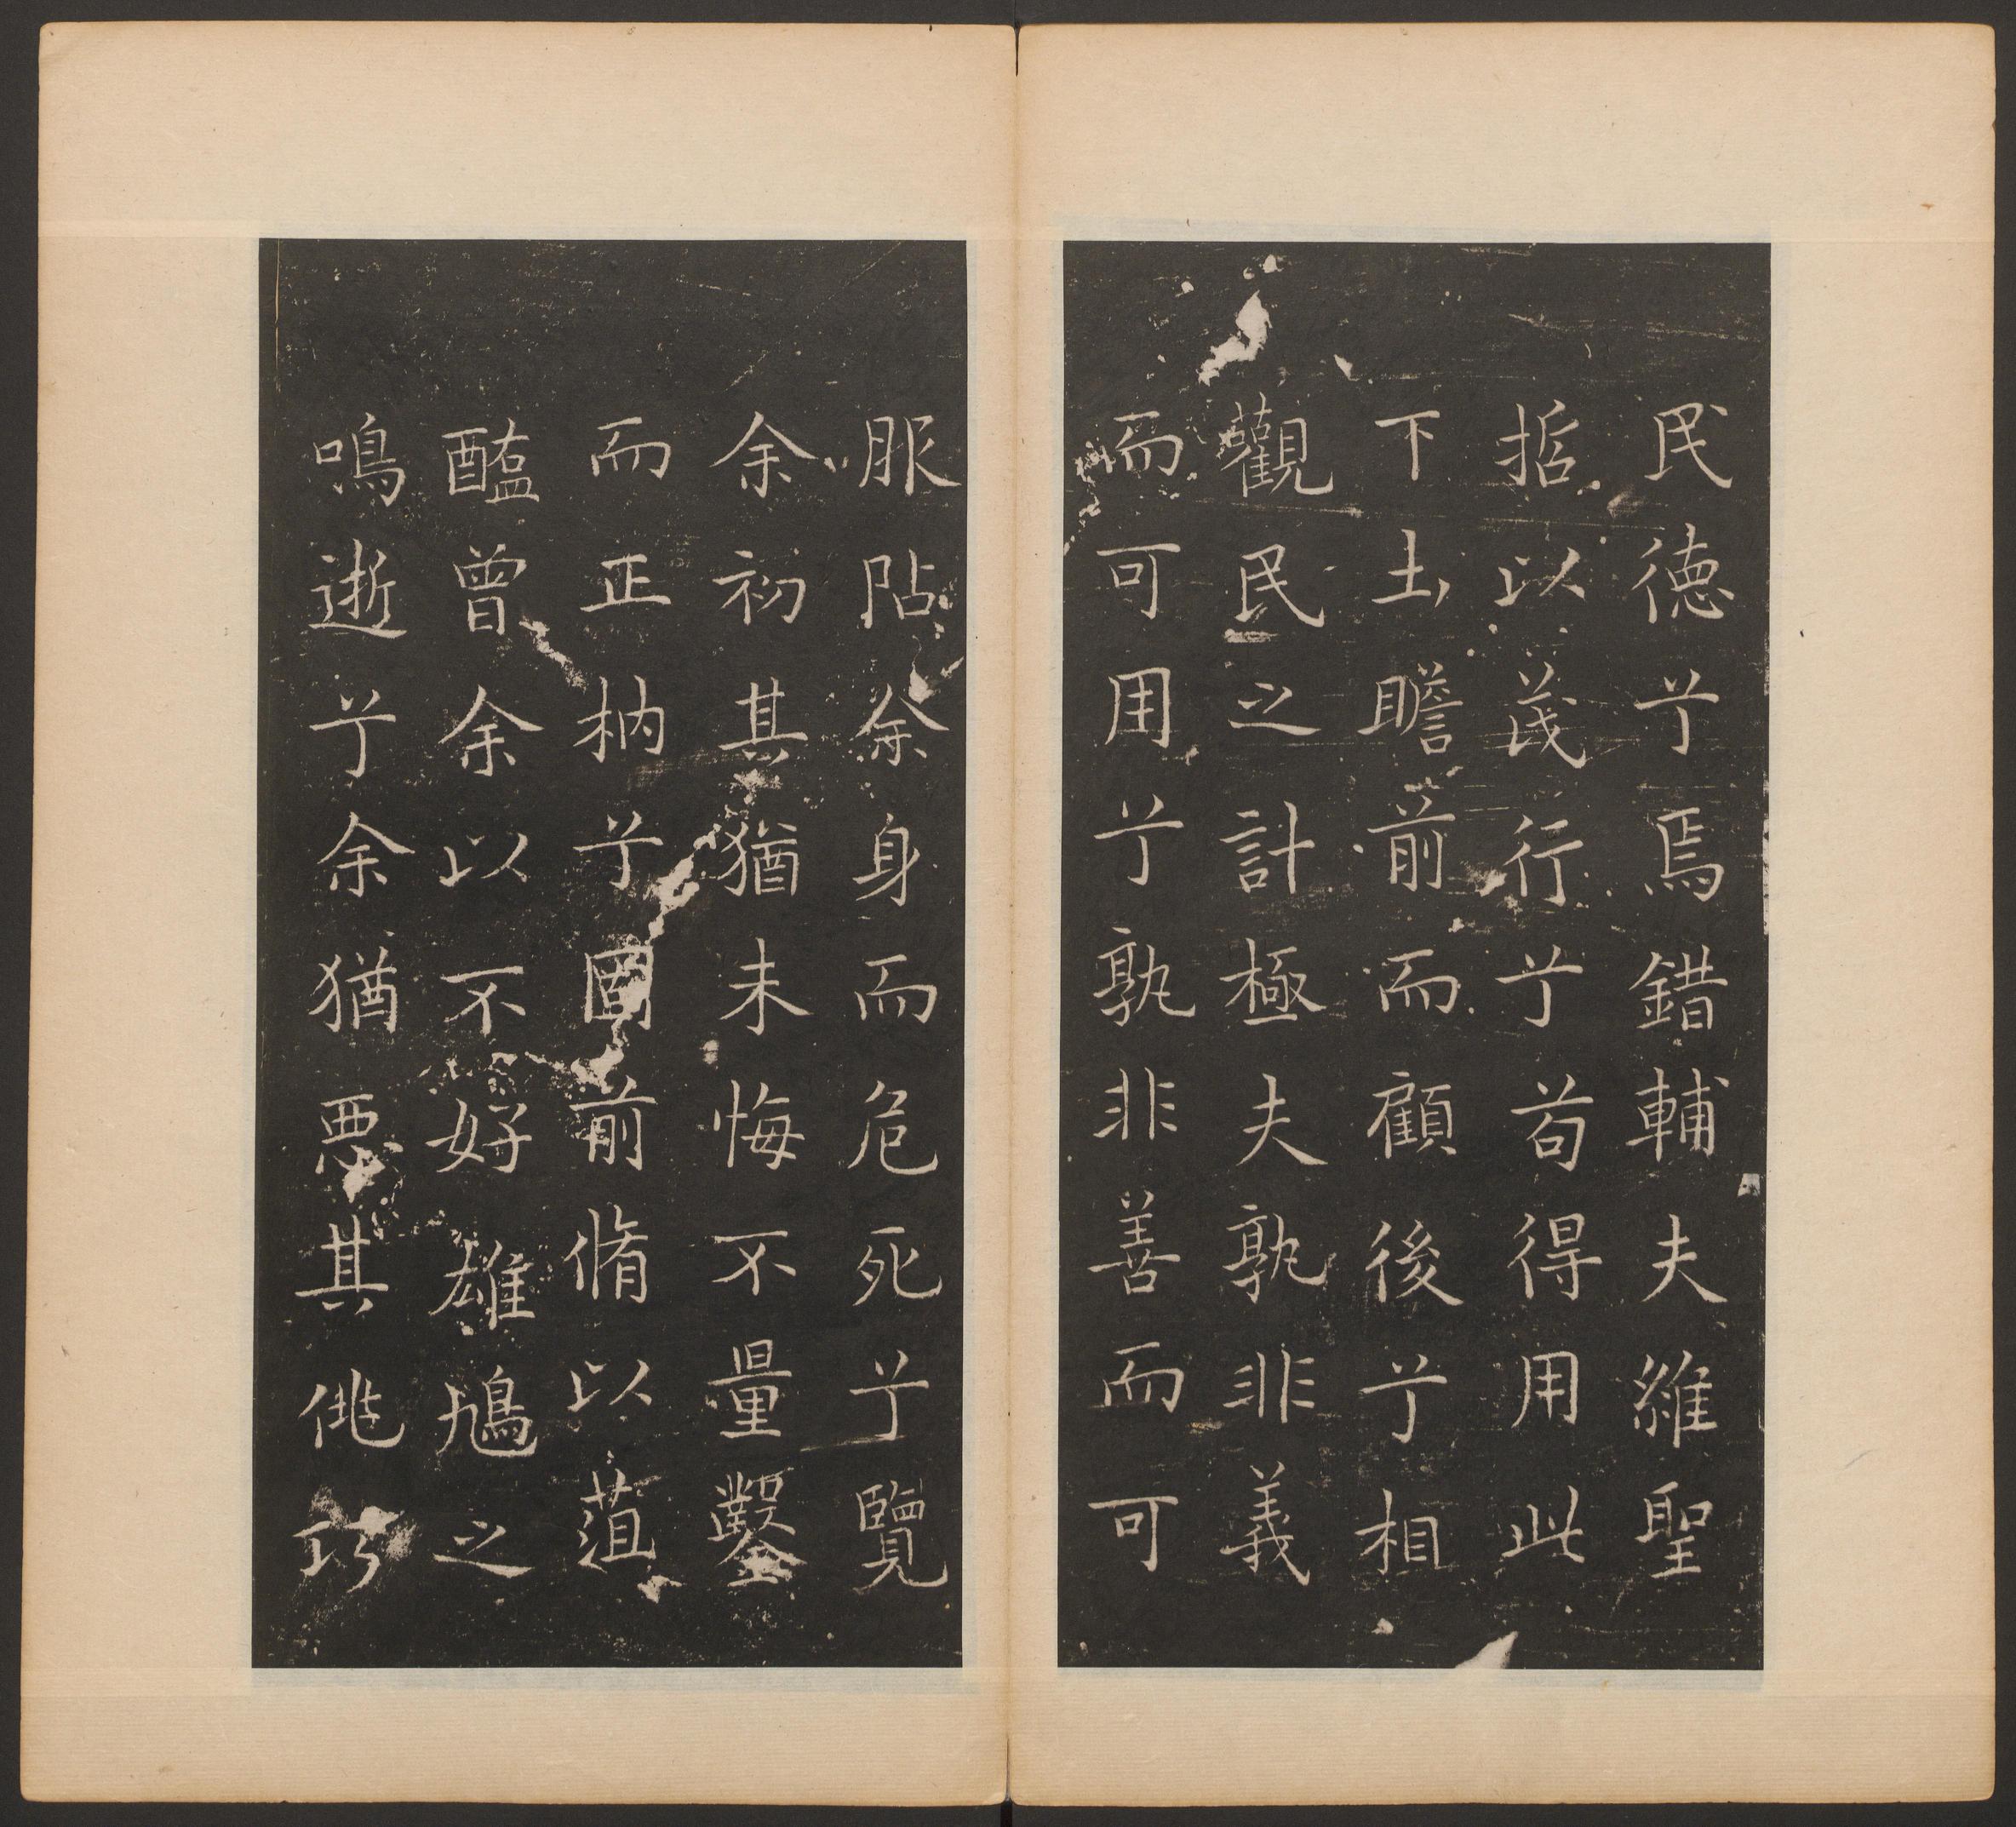 民德兮焉錯輔夫維聖
哲以茂行兮苟得用此
下土瞻前而顧後兮相
觀民之計極夫孰非義
而可用兮孰非善而可
服阽余身而危死兮覽
余初其猶未悔不量鑿
而正枘兮固前脩以菹
醢曾余以不好雄鳩之
鳴逝兮余猶惡其佻巧